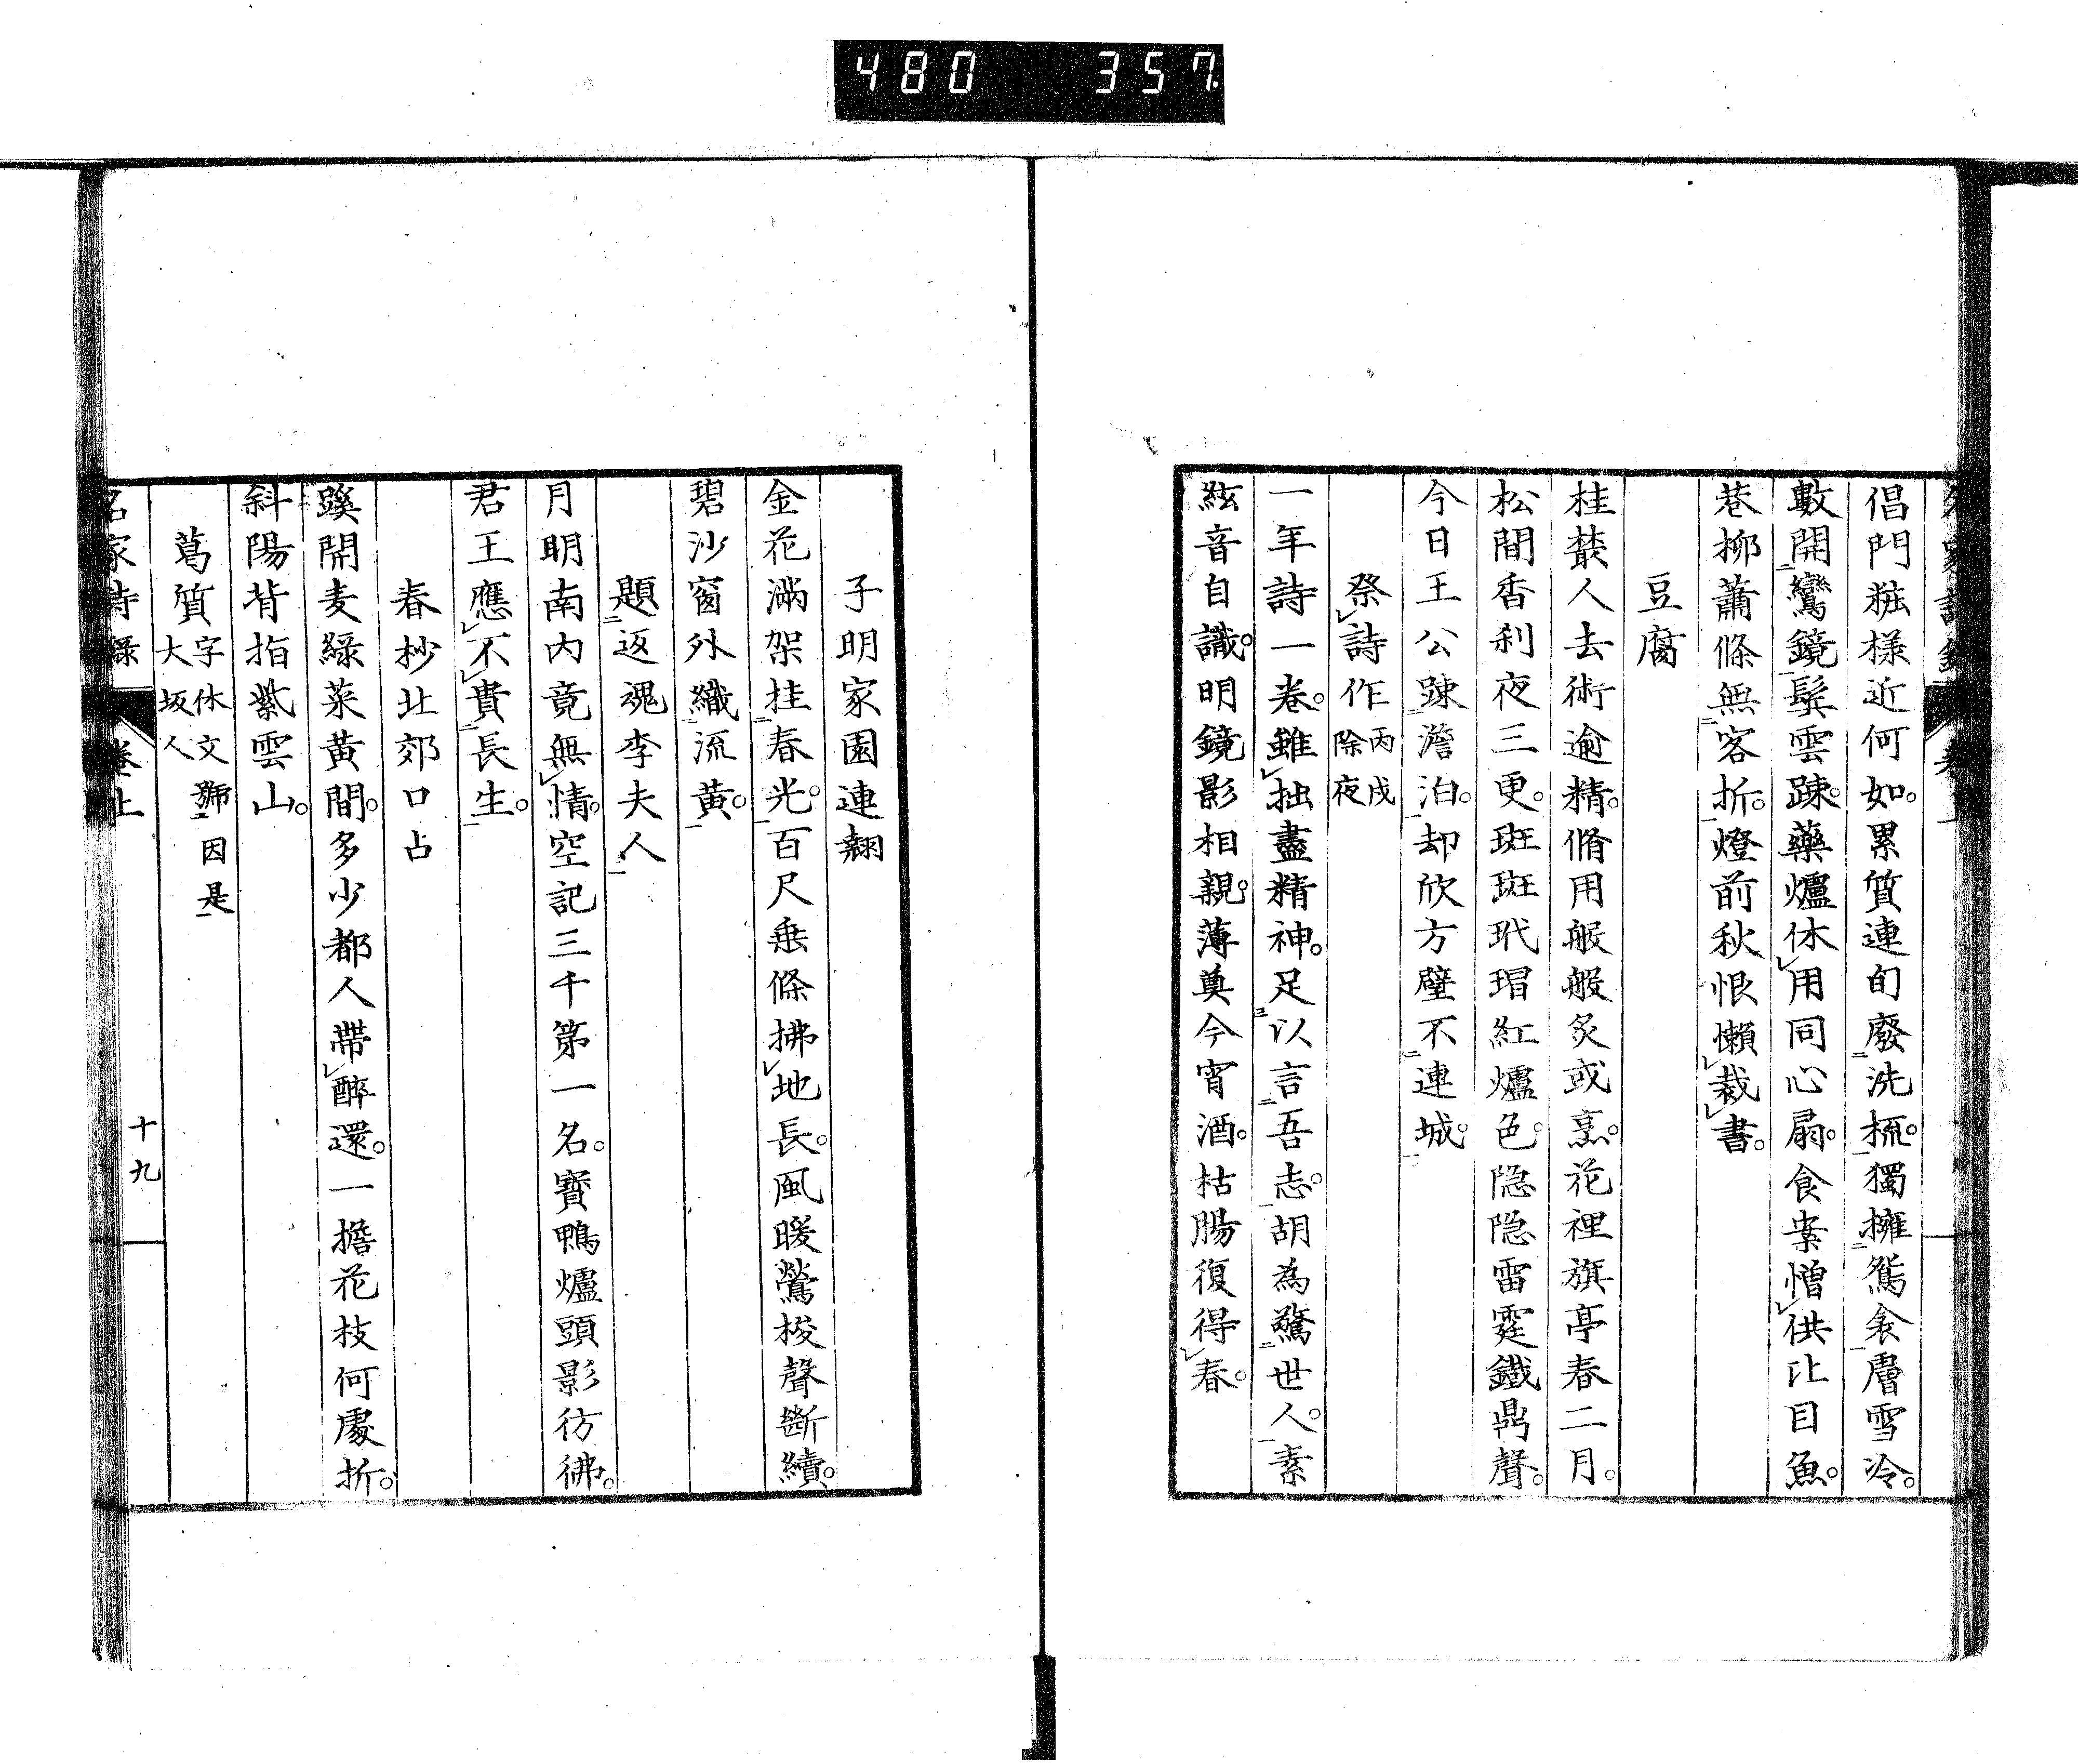 480 357
倡門粧樣近何如。累質連旬廢洗梳。獨擁鴛衾層雪冷。
數開鸞鏡鬂雲踈。藥爐休用同心扇。食案憎供比目魚。
巷柳蕭條無客折。燈前秋恨懶裁書。
豆腐
桂叢人去術逾精。脩用般般炙或烹。花裡旗亭春二月。
松間香刹夜三更。斑斑玳瑁紅爐色。隐隐雷霆鐵鼎聲。
今日王公踈澹泊。却欣方璧不連城。
祭詩作丙戌除夜
一年詩一卷。雖拙盡精神。足以言吾志。胡為驚世人。素
絃音自識。明鏡影相親。薄奠今宵酒。枯腸復得春。
子明家園連翹
金花滿架挂春光。百尺垂條拂地長。風暖鶯梭聲斷續。
碧沙窗外織流黃。
題返魂李夫人
月明南内竟無情。空記三千第一名。寶鴨爐頭影彷彿。
君王應不貴長生。
春杪北郊口占
蹊開麦綠菜黃間。多少都人帶醉還。一擔花枝何處折。
斜陽背指紫雲山。
葛質字休文號因是大坂人
名家詩録 卷上 十九